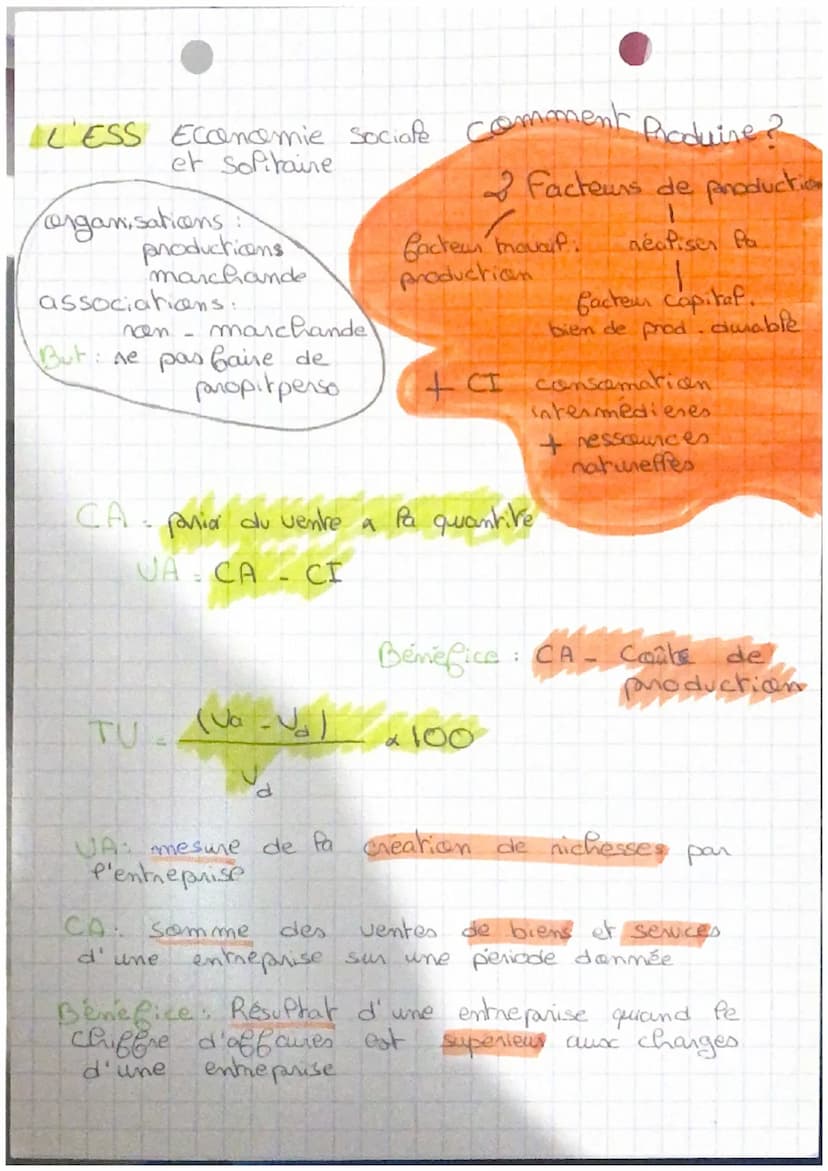 L'ESS Economie sociale
et solitaire
organisations :
productions
marchande
associations :
non - marchande
But : ne pas faire de
propit perso
Comment Produire ?
2 Facteurs de production
facteur travail : réaliser la
production
facteur capital.
bien de prod. durable
+ CI consomation
intermédieres
+ ressources
naturelles
CA = prix du vente x la quantité
VA = CA - CI
Bénéfice : CA - Coûts de
production
TV = (Va - Vd) x 100
Vd
VA : mesure de la création de richesses par
l'entreprise
CA : Somme des ventes de biens et services
d'une entreprise sur une période donnée
Bénéfice : Résultat d'une entreprise quand le
chiffre d'affaires est supérieur aux charges
d'une entreprise